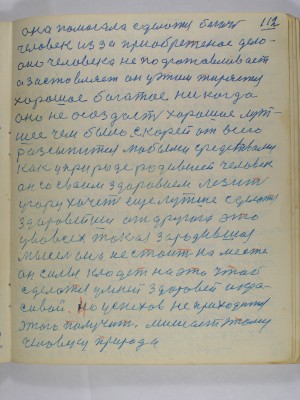 112
она помогала сделать богат
человек из за приобретеное дело
оно человека не подготавливает
а заставляет он этим теряет
хорошое богатое никогда
оно не создаст хорошие лут-
шее чем было, скорей от всего
рассыпится любыми средствами
как у природе родивший человек
он со своим здоровием лезит
угору хочет еще лутше сделать
здоровей от другого это
у во всех такая зародившая
мысел она не стоит на месте
он силы кладет на это чтоб
сделать умней здоровей и кра-
сивой. Но успехов не приходится
этого получит. мишает этому
человеку природа